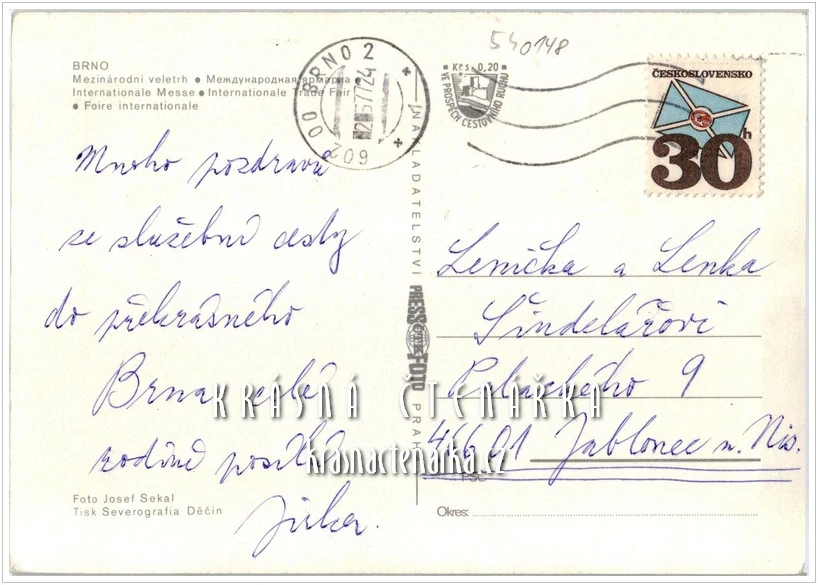 540148
BRNO
Mezinárodní veletrh ● Международная ярмарка ●
Internationale Messe ● Internationale Trade Fair
● Foire internationale
BRNO 2
209
Kčs 0,20
VE PROSPĚCH CESTOVNÍHO RUCHU
ČESKOSLOVENSKO
30h
Mnoho pozdravů
ze služební cesty
do překrásného
Brna celé
rodině posílá
Jirka.
NAKLADATELSTVÍ PRESSFOTO PRAHA
Lenička a Lenka
Šindelářovi
9
46601 Jablonec n. Nis.
PSČ
KRÁSNÁ ČTENÁŘKA
krasnactenarka.cz
Foto Josef Sekal
Tisk Severografia Děčín
Okres: